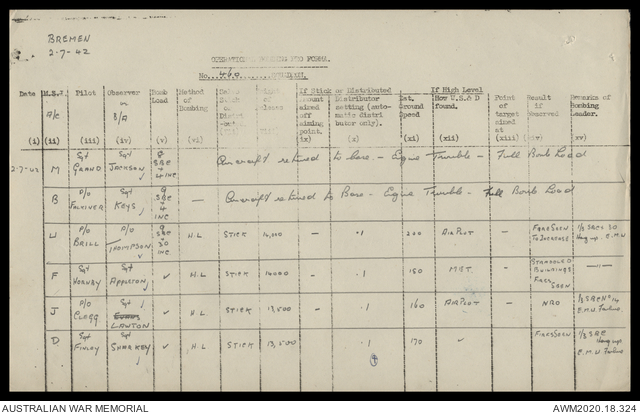 BREMEN
2-7-42
OPERATIONAL BOMBING PRO FORMA.
No. 460 SQUADRON.
Date M.S.? Pilot Observer Bomb Method If Stick or Distributed If High Level Point Result Remarks of
A/C or Load of Distributor Est. How U.S & D of if Bombing
B/A Bombing aimed setting (auto- Ground found. target observed Leader.
off matic distri- Speed aimed
aiming butor only). at
point.
(i) (ii) (iii) (iv) (v) (vi) (ix) (x) (xi) (xii) (xiii) (xiv) (xv)
2-7-42 M Sgt GRAND Sgt JACKSON 8 SBC 4 INC Aircraft returned to base - Engine Trouble - Full Bomb Load
B P/O Sgt KEYS 9 SBC 4 INC — Aircraft returned to Base - Engine Trouble - Full Bomb Load
U P/O BRILL P/O THOMPSON 9 SBC 30 INC H.L STICK 14,000 - .1 200 AIR PLOT - FIRES SEEN TO INCREASE 1/3 SBC 30 Hang up E.M.U
F Sgt HORNBY Sgt APPLETON ✓ H.L STICK 14000 - .1 150 - STRADDLED BUILDINGS FIRES SEEN —"—
J P/O CLEGG Sgt LAWTON ✓ H.L STICK 13,500 - .1 160 AIR PLOT - NRO E.M.U Failure
D Sgt FINLEY Sgt SHARKEY ✓ H.L STICK 13,500 .1 170 ✓ - FIRES SEEN 1/3 SBC Hang up E.M.U Failure
AUSTRALIAN WAR MEMORIAL
AWM2020.18.324